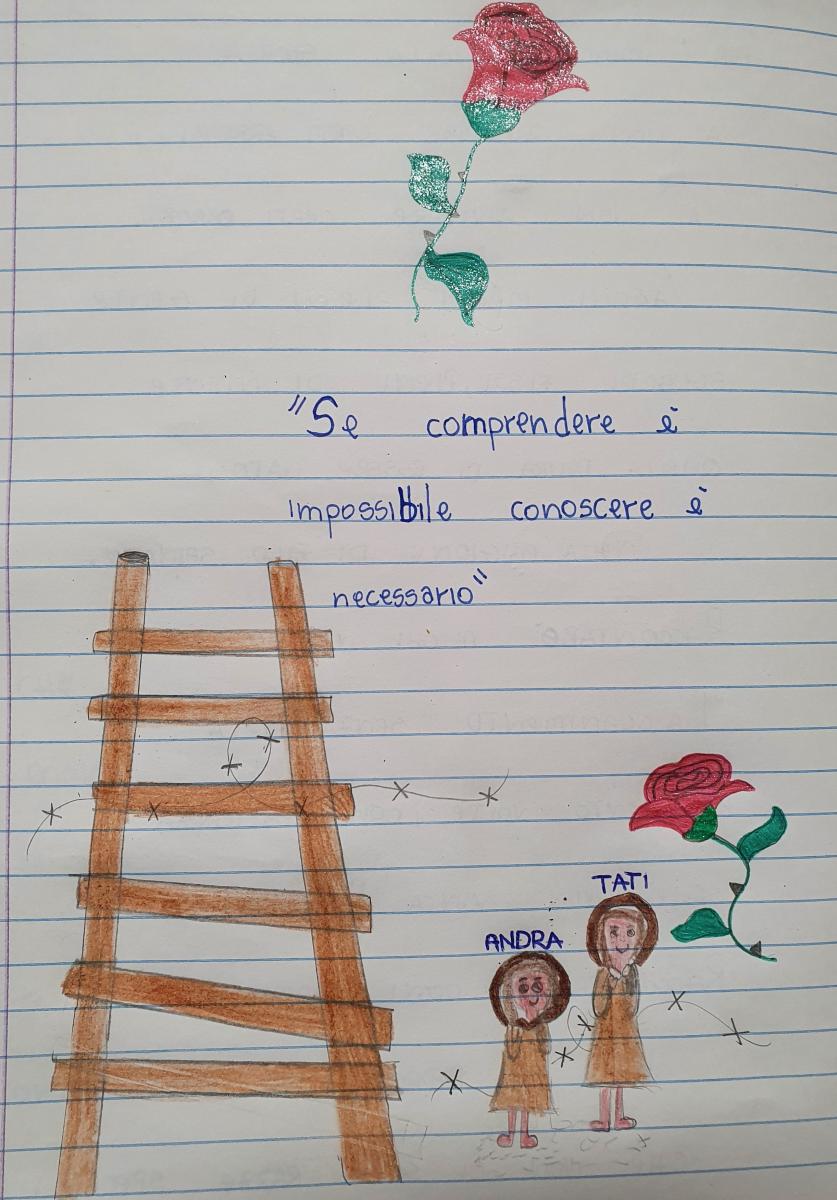 "Se comprendere è
impossibile conoscere è
necessario"
TATI
ANDRA